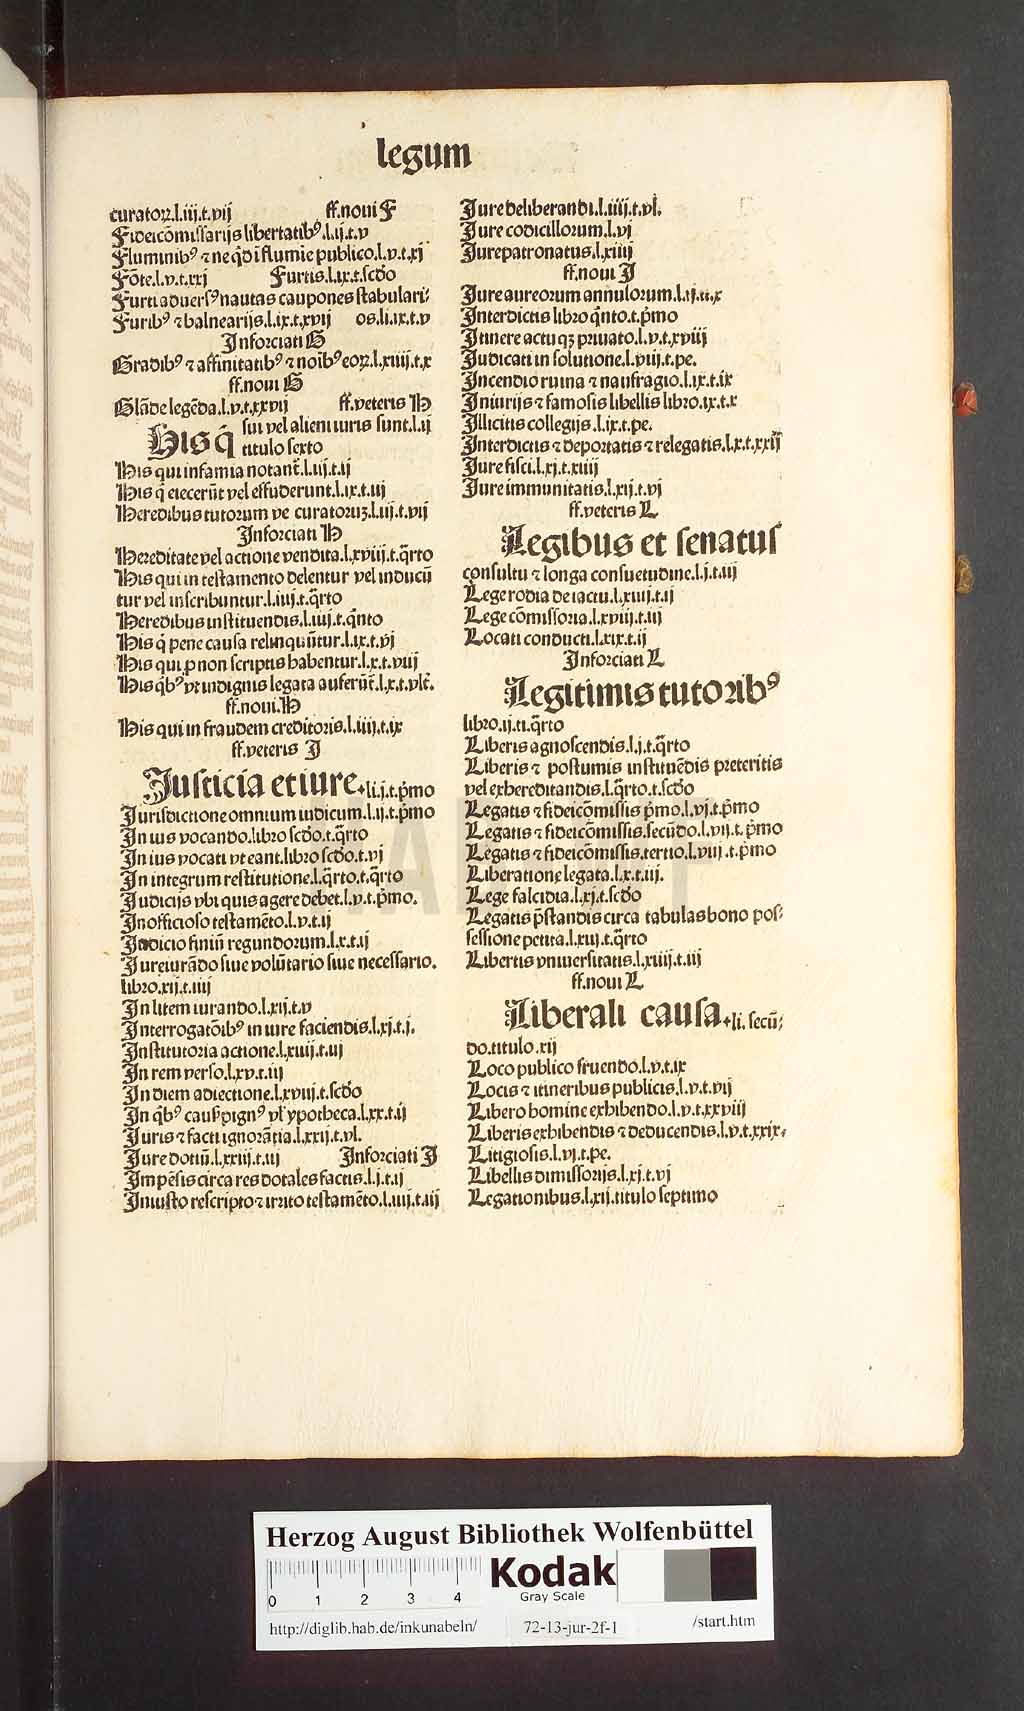 legum
curatoꝝ.l.iij.t.vij ff.noui F
Fideicõmissarijs libertatibꝰ.l.ij.t.v
Fluminibꝰ ⁊ ne qd̓ i flumie publico.l.v.t.xj
Fõte.l.v.t.xxj Furtis.l.ix.t.scd̓o
Furti aduersꝰ nautas caupones stabulari⸗
Furibꝰ ⁊ balnearijs.l.ix.t.xvij os.li.ix.t.v
Inforciati G
Gradibꝰ ⁊ affinitatibꝰ ⁊ noĩbꝰ eoꝝ.l.xiiij.t.x
ff.noui G
Glãde legẽda.l.v.t.xxvij ff.veteris H
His q̃ sui vel alieni iuris sunt.l.ij
titulo sexto
His qui infamia notant̃.l.iij.t.ij
His q̃ eiecerũt vel effuderunt.l.ix.t.iij
Heredibus tutorum ve curatoruꝫ.l.iij.t.vij
Inforciati H
Hereditate vel actione vendita.l.xviij.t.q̃rto
His qui in testamento delentur vel inducũ
tur vel inscribuntur.l.iiij.t.q̃rto
Heredibus instituendis.l.iiij.t.q̃nto
His q̃ pene causa relinquũtur.l.ix.t.vj
His qui ꝓ non scriptis habentur.l.x.t.viij
His qb̓ꝰ vt indignis legata auferũt̃.l.x.t.vlt̃.
ff.noui.H
His qui in fraudem creditoris.l.iiij.t.ix
ff.veteris I
Iusticia et iure.li.j.t.p̃mo
Iurisdictione omnium iudicum.l.ij.t.p̃mo
In ius vocando.libro scd̓o.t.q̃rto
In ius vocati vt eant.libro scd̓o.t.vj
In integrum restitutione.l.q̃rto.t.q̃rto
Iudicijs vbi quis agere debet.l.v.t.p̃mo.
Inofficioso testamẽto.l.v.t.ij
Iudicio finiũ regundorum.l.x.t.ij
Iureiurãdo siue volũtario siue necessario.
libro.xij.t.iiij
In litem iurando.l.xij.t.v
Interrogatõibꝰ in iure faciendis.l.xj.t.j.
Institutoria actione.l.xiiij.t.iij
In rem verso.l.xv.t.iij
In diem adiectione.l.xviij.t.scd̓o
In qb̓ꝰ caus̃ pignꝰ vl̓ ypotheca.l.xx.t.ij
Iuris ⁊ facti ignorãtia.l.xxij.t.vl.
Iure dotiũ.l.xxiij.t.iij Inforciati I
Impẽsis circa res dotales factis.l.j.t.ij
Iniusto rescripto ⁊ irrito testamẽto.l.iiij.t.iij
Iure deliberandi.l.iiij.t.vl.
Iure codicillorum.l.vj
Iurepatronatus.l.xiiij
ff.noui I
Iure aureorum annulorum.l.ij.ti.x
Interdictis libro q̃nto.t.p̃mo
Itinere actu qꝫ priuato.l.v.t.xviij
Iudicati in solutione.l.viij.t.pe.
Incendio ruina ⁊ naufragio.l.ix.t.ix
Iniurijs ⁊ famosis libellis libro.ix.t.x
Illicitis collegijs.l.ix.t.pe.
Interdictis ⁊ deportatis ⁊ relegatis.l.x.t.xxij
Iure fisci.l.xj.t.xiiij
Iure immunitatis.l.xij.t.vj
ff.veteris L
Legibus et senatus
consultu ⁊ longa consuetudine.l.j.t.iij
Lege rodia de iactu.l.xiiij.t.ij
Lege cõmissoria.l.xviij.t.iij
Locati conducti.l.xix.t.ij
Inforciati L
Legitimis tutoribꝰ
libro.ij.ti.q̃rto
Liberis agnoscendis.l.j.t.q̃rto
Liberis ⁊ postumis instituẽdis preteritis
vel exhereditandis.l.q̃rto.t.scd̓o
Legatis ⁊ fideicõmissis p̃mo.l.vj.t.p̃mo
Legatis ⁊ fideicõmissis.secũdo.l.vij.t.p̃mo
Legatis ⁊ fideicõmissis.tertio.l.viij.t.p̃mo
Liberatione legata.l.x.t.iij.
Lege falcidia.l.xj.t.scd̓o
Legatis p̃standis circa tabulas bono pos⸗
sessione petita.l.xiij.t.q̃rto
Libertis vniuersitatis.l.xiiij.t.iij
ff.noui L
Liberali causa.li.secũ⸗
do.titulo.xij
Loco publico fruendo.l.v.t.ix
Locis ⁊ itineribus publicis.l.v.t.vij
Libero homine exhibendo.l.v.t.xxviij
Liberis exhibendis ⁊ deducendis.l.v.t.xxix.
Litigiosis.l.vj.t.pe.
Libellis dimissorijs.l.xj.t.vj
Legationibus.l.xij.titulo septimo
HAB
Herzog August Bibliothek Wolfenbüttel
0 1 2 3 4
Kodak
Gray Scale
http://diglib.hab.de/inkunabeln/ 72-13-jur-2f-1 /start.htm